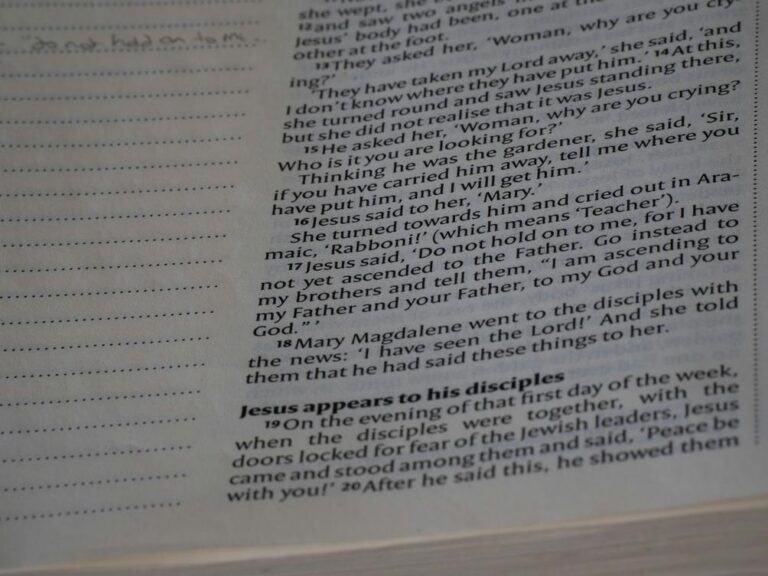 she wept, she
12and saw two angels
Jesus' body had been, one at the
other at the foot.
13They asked her, 'Woman, why are you cry-
ing?'
'They have taken my Lord away,' she said, 'and
I don't know where they have put him.' 14At this,
she turned round and saw Jesus standing there,
but she did not realise that it was Jesus.
15He asked her, 'Woman, why are you crying?
Who is it you are looking for?'
Thinking he was the gardener, she said, 'Sir,
if you have carried him away, tell me where you
have put him, and I will get him.'
16Jesus said to her, 'Mary.'
She turned towards him and cried out in Ara-
maic, 'Rabboni!' (which means 'Teacher').
17Jesus said, 'Do not hold on to me, for I have
not yet ascended to the Father. Go instead to
my brothers and tell them, "I am ascending to
my Father and your Father, to my God and your
God." '
18Mary Magdalene went to the disciples with
the news: 'I have seen the Lord!' And she told
them that he had said these things to her.
Jesus appears to his disciples
19On the evening of that first day of the week,
when the disciples were together, with the
doors locked for fear of the Jewish leaders, Jesus
came and stood among them and said, 'Peace be
with you!' 20After he said this, he showed them